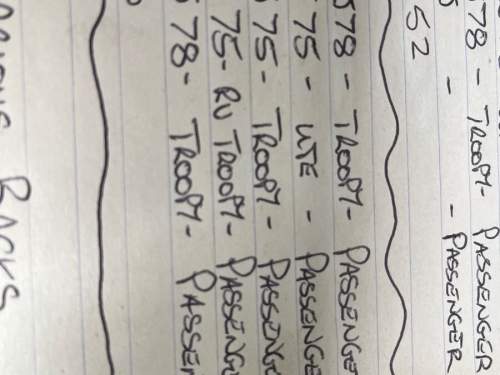 78 - TROOPY - PASSENGER
- - PASSENGER
52
78 - TROOPY - PASSENGE
75 - UTE - PASSENGE
75 - TROOPY - PASSENG
75 - RV TROOPY - PASSENGE
78 - TROOPY - PASSE
BACKS